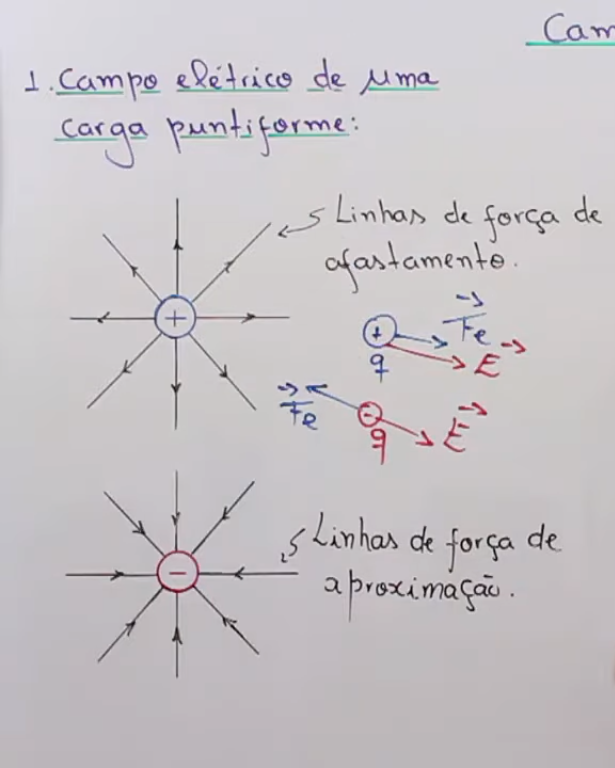 Cam
1. Campo elétrico de uma
carga puntiforme:
Linhas de força de
afastamento.
+
+ Fe
q E
Fe - E
q
-
Linhas de força de
aproximação.